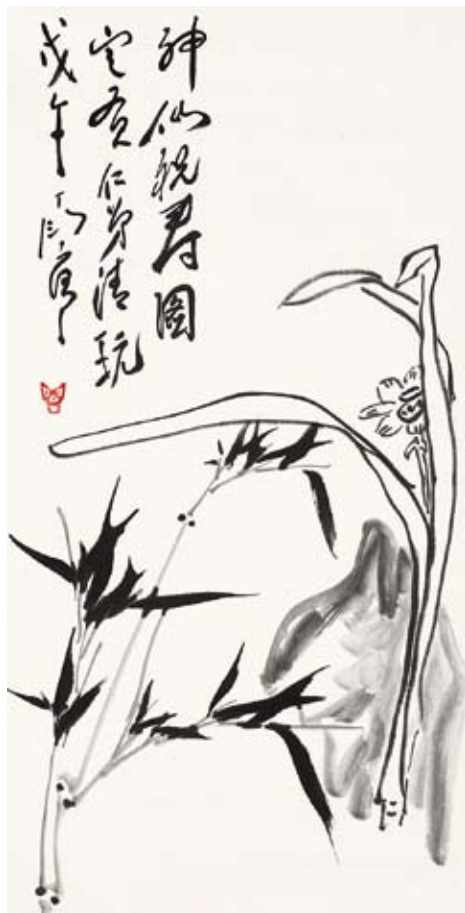 神仙祝壽圖
定仁弟清玩
戊午丁衍庸